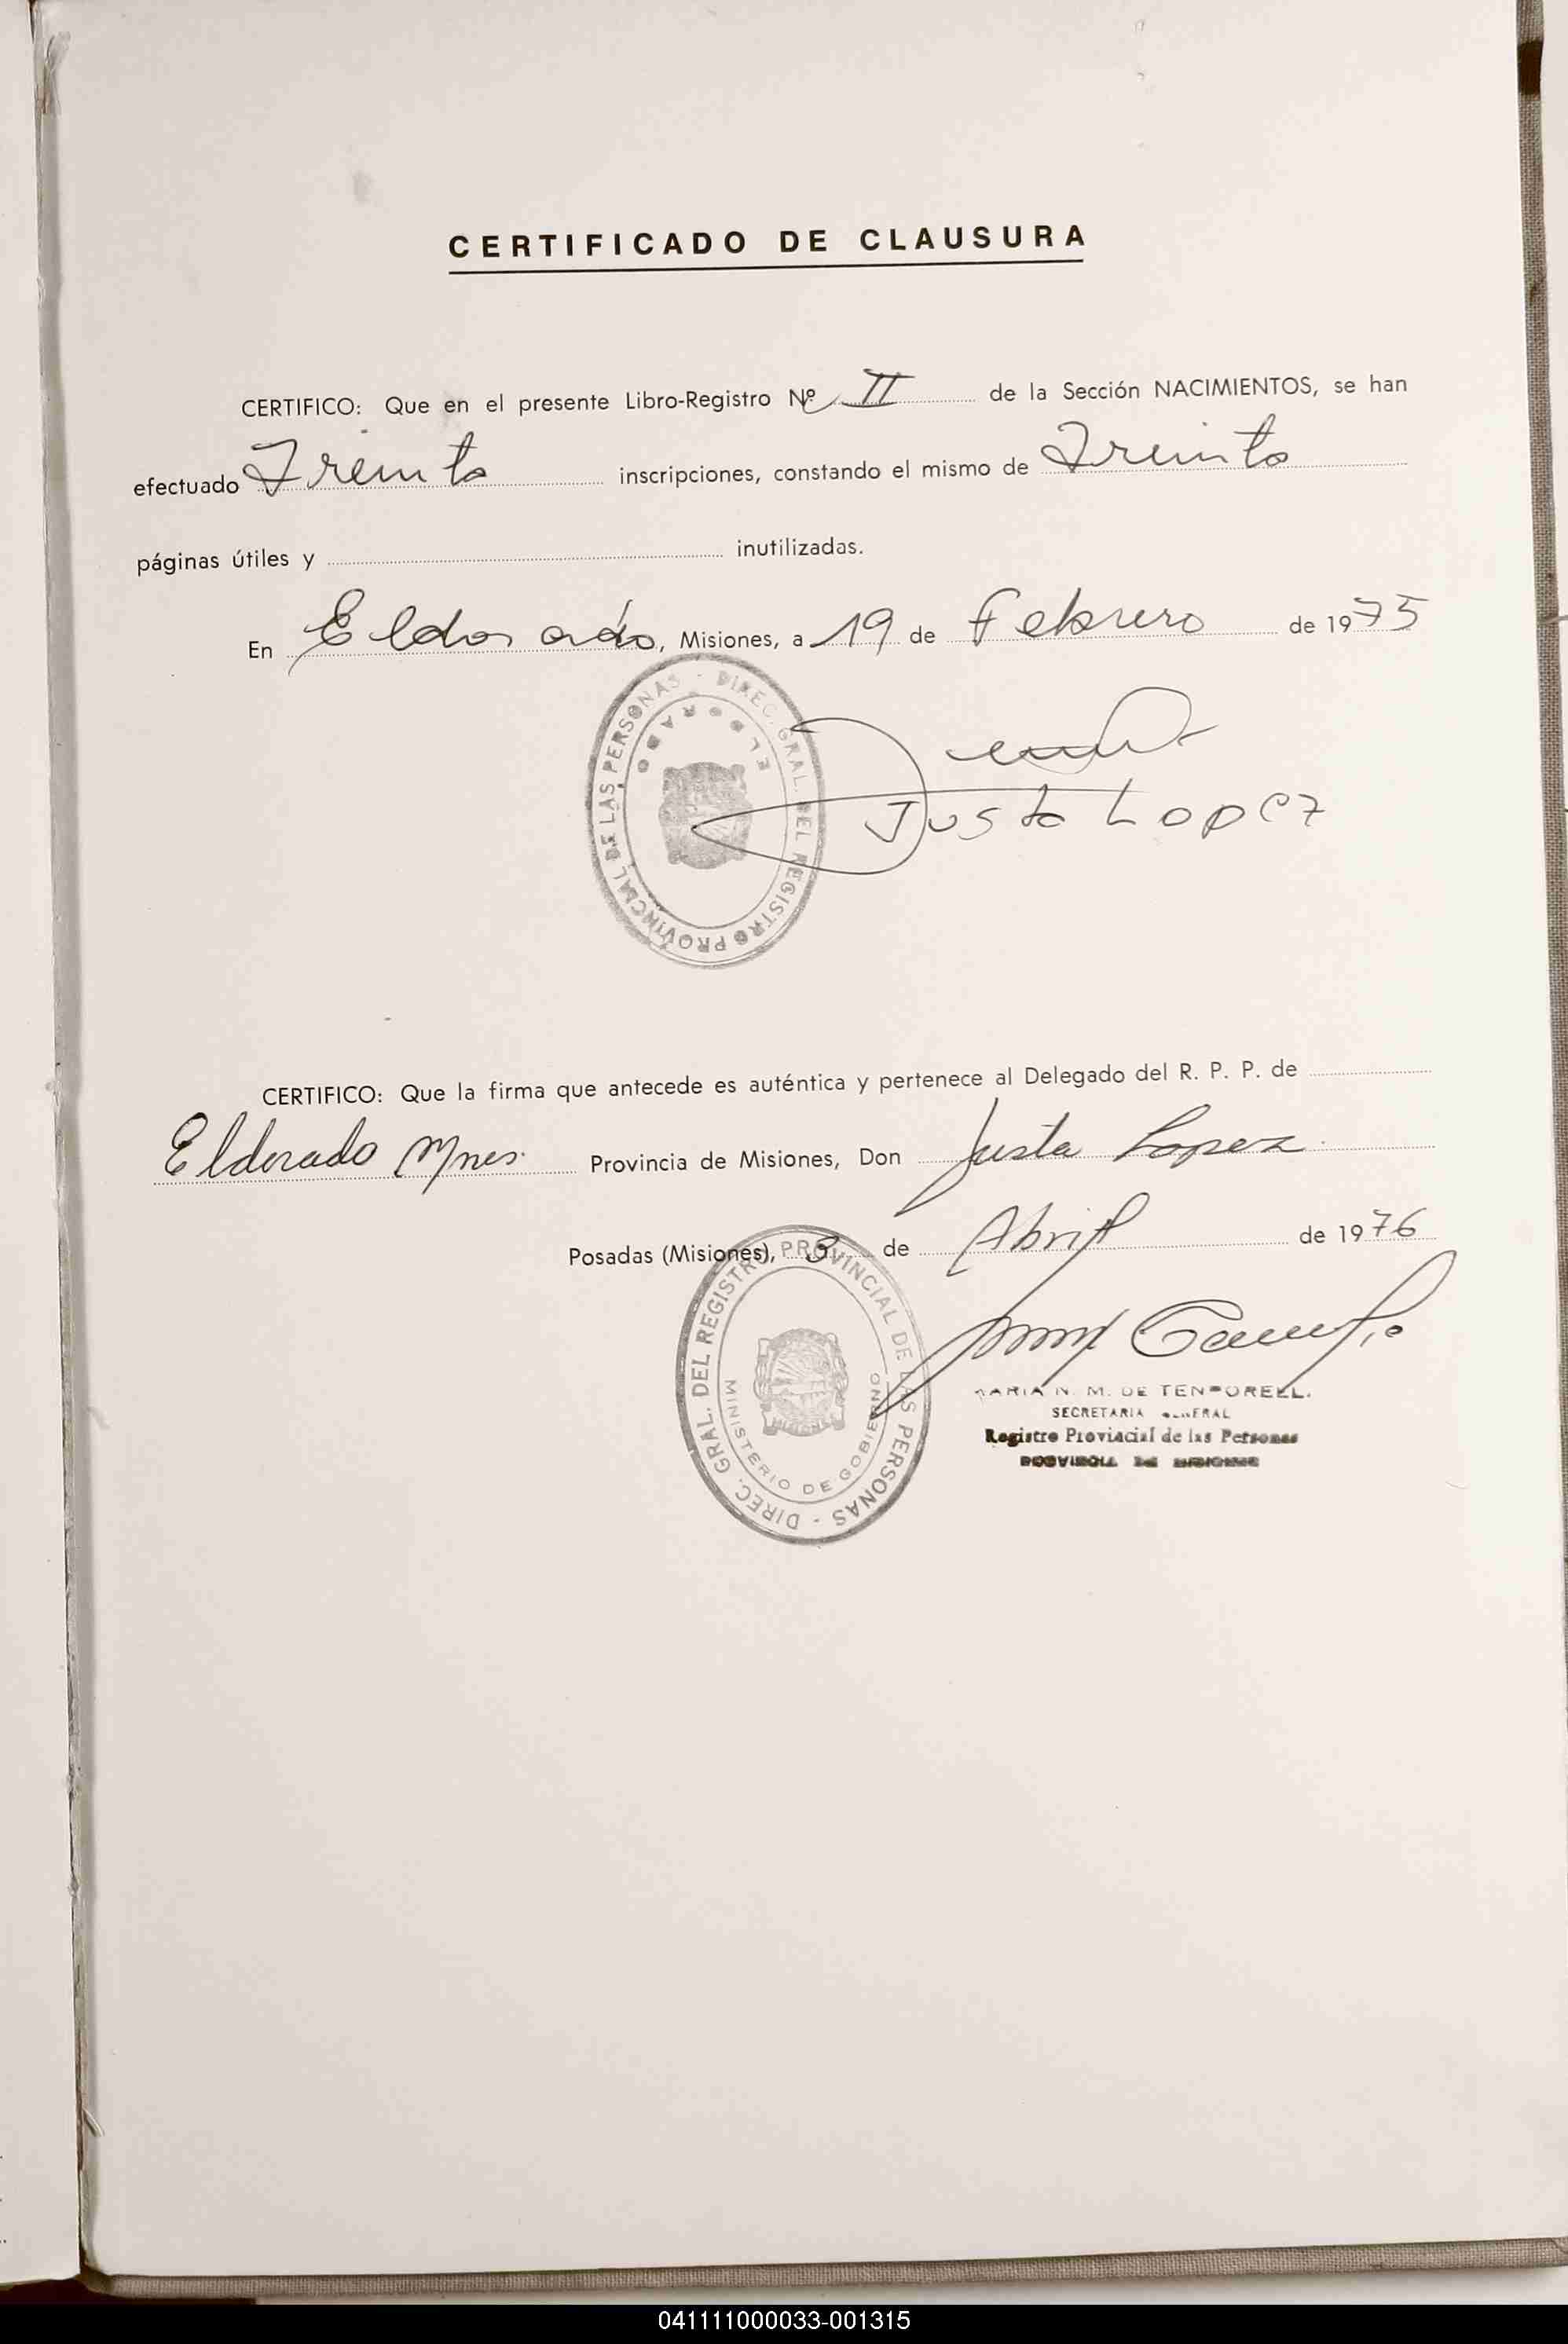 CERTIFICADO DE CLAUSURA
CERTIFICO: Que en el presente Libro-Registro Nº II de la Sección NACIMIENTOS, se han
efectuado Treinta inscripciones, constando el mismo de Treinta
páginas útiles y inutilizadas.
En Eldorado, Misiones, a 19 de Febrero de 1975
DIREC. GRAL. DEL REGISTRO PROVINCIAL DE LAS PERSONAS -
ELDORADO
Justo Lopez
CERTIFICO: Que la firma que antecede es auténtica y pertenece al Delegado del R. P. P. de
Eldorado Mnes. Provincia de Misiones, Don Justo Lopez
Posadas (Misiones), 3 de Abril de 1976
DIREC. GRAL. DEL REGISTRO PROVINCIAL DE LAS PERSONAS -
MINISTERIO DE GOBIERNO
MARIA N. M. DE TEMPORELL.
SECRETARIA GENERAL
Registro Provincial de las Personas
PROVINCIA DE MISIONES
041111000033-001315